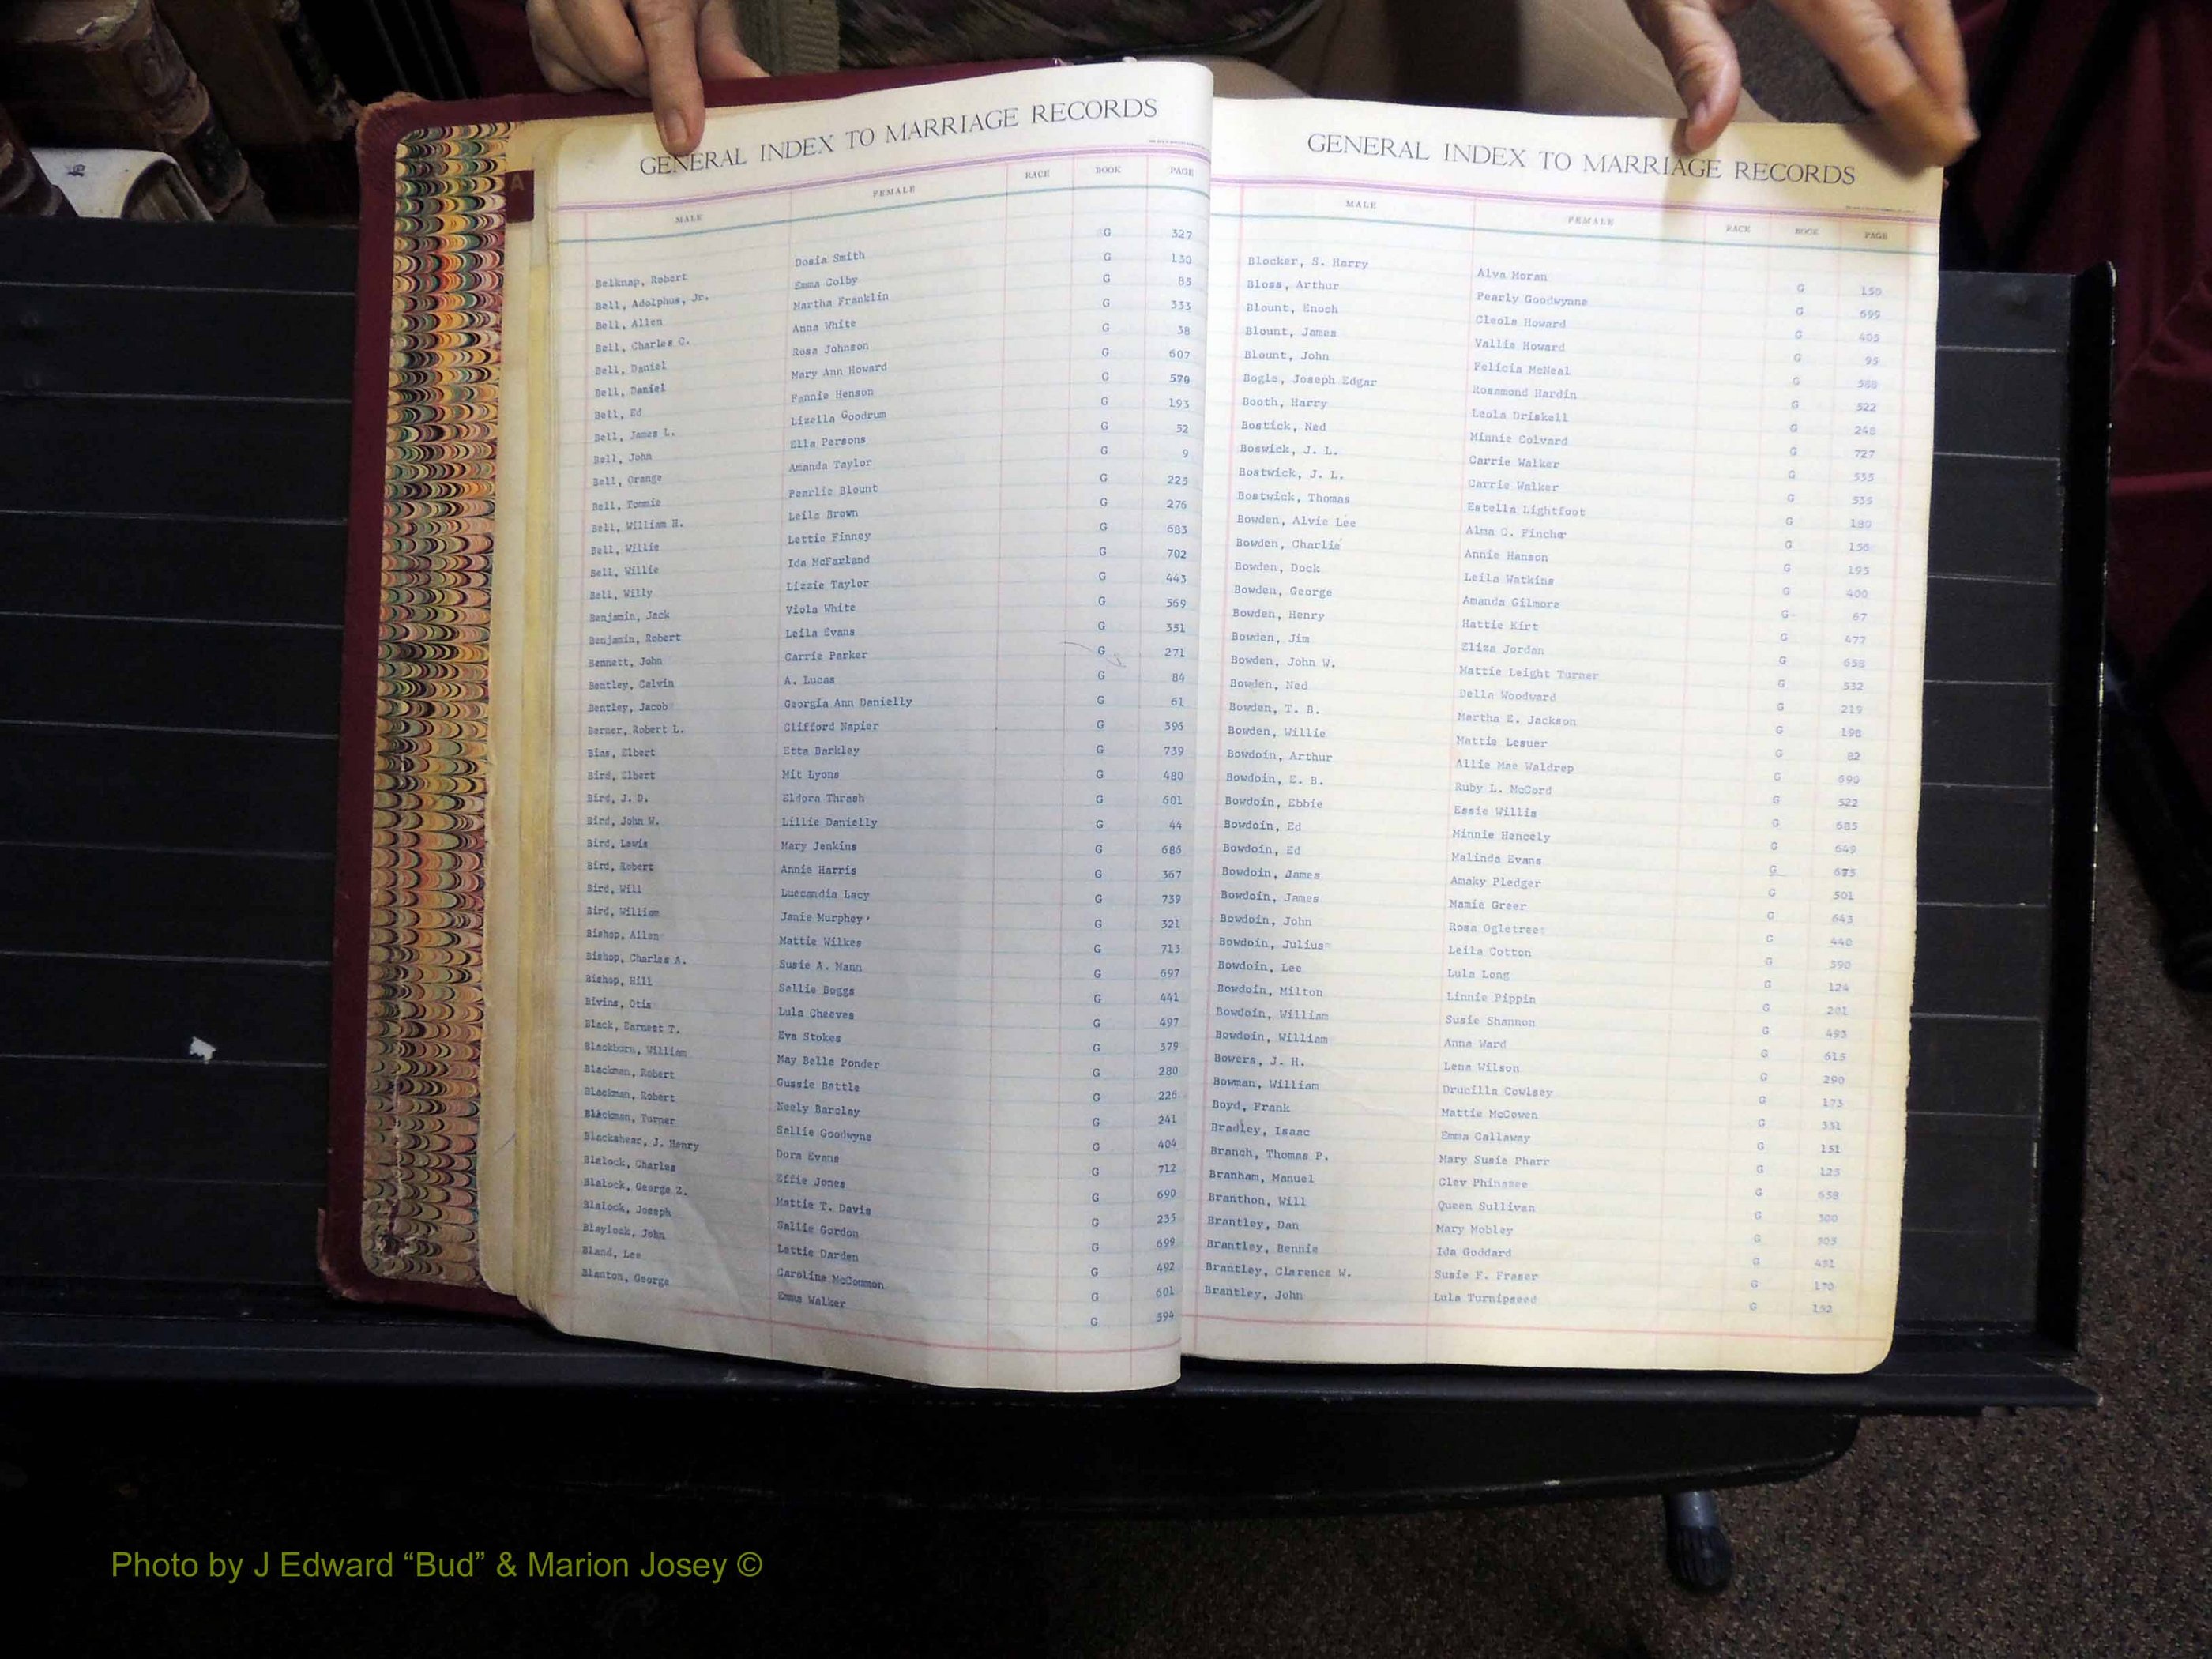 GENERAL INDEX TO MARRIAGE RECORDS
MALE FEMALE RACE BOOK PAGE
Belknap, Robert Dosia Smith G 327
Bell, Adolphus, Jr. Emma Colby G 130
Bell, Allen Martha Franklin G 85
Bell, Charles C. Anna White G 333
Bell, Daniel Rosa Johnson G 38
Bell, Daniel Mary Ann Howard G 607
Bell, Ed Fannie Henson G 570
Bell, James L. Lizella Goodrum G 193
Bell, John Ella Persons G 52
Bell, Orange Amanda Taylor G 9
Bell, Tommie Pearlie Blount G 225
Bell, William H. Leila Brown G 276
Bell, Willie Lettie Finney G 683
Bell, Willie Ida McFarland G 702
Bell, Willy Lizzie Taylor G 443
Benjamin, Jack Viola White G 569
Benjamin, Robert Leila Evans G 351
Bennett, John Carrie Parker G 271
Bentley, Calvin A. Lucas G 84
Bentley, Jacob Georgia Ann Danielly G 61
Berner, Robert L. Clifford Napier G 396
Bias, Elbert Etta Barkley G 739
Bird, Elbert Mit Lyons G 480
Bird, J. D. Eldora Thrash G 601
Bird, John W. Lillie Danielly G 44
Bird, Lewis Mary Jenkins G 686
Bird, Robert Annie Harris G 367
Bird, Will Luecandia Lacy G 739
Bird, William Janie Murphey G 321
Bishop, Allen Mattie Wilkes G 713
Bishop, Charles A. Susie A. Mann G 697
Bishop, Hill Sallie Boggs G 441
Bivins, Otis Lula Cheeves G 497
Black, Earnest T. Eva Stokes G 379
Blackburn, William May Belle Ponder G 280
Blackman, Robert Gussie Battle G 226
Blackman, Robert Neely Barclay G 241
Blackman, Turner Sallie Goodwyne G 404
Blackshear, J. Henry Dora Evans G 712
Blalock, Charles Effie Jones G 690
Blalock, George Z. Mattie T. Davis G 235
Blalock, Joseph Sallie Gordon G 699
Blaylock, John Lettie Darden G 492
Bland, Lee Caroline McCommon G 601
Blanton, George Emma Walker G 594
GENERAL INDEX TO MARRIAGE RECORDS
MALE FEMALE RACE BOOK PAGE
Blocker, S. Harry Alva Moran G 150
Bloss, Arthur Pearly Goodwynne G 699
Blount, Enoch Cleola Howard G 405
Blount, James Vallie Howard G 95
Blount, John Felicia McNeal G 588
Bogle, Joseph Edgar Rosamond Hardin G 522
Booth, Harry Leola Driskell G 248
Bostick, Ned Minnie Colvard G 727
Boswick, J. L. Carrie Walker G 535
Bostwick, J. L. Carrie Walker G 535
Bostwick, Thomas Estella Lightfoot G 180
Bowden, Alvie Lee Alma C. Pincher G 156
Bowden, Charlie Annie Hanson G 195
Bowden, Dock Leila Watkins G 400
Bowden, George Amanda Gilmore G 67
Bowden, Henry Hattie Kirt G 477
Bowden, Jim Eliza Jordan G 658
Bowden, John W. Mattie Leight Turner G 532
Bowden, Ned Della Woodward G 219
Bowden, T. B. Martha E. Jackson G 198
Bowden, Willie Mattie Lesuer G 82
Bowdoin, Arthur Allie Mae Waldrep G 690
Bowdoin, E. B. Ruby L. McCord G 522
Bowdoin, Ebbie Essie Willis G 685
Bowdoin, Ed Minnie Hencely G 649
Bowdoin, Ed Malinda Evans G 675
Bowdoin, James Amaky Pledger G 501
Bowdoin, James Mamie Greer G 643
Bowdoin, John Rosa Ogletree G 440
Bowdoin, Julius Leila Cotton G 390
Bowdoin, Lee Lula Long G 124
Bowdoin, Milton Linnie Pippin G 201
Bowdoin, William Susie Shannon G 493
Bowdoin, William Anna Ward G 615
Bowers, J. H. Lena Wilson G 290
Bowman, William Drucilla Cowlsey G 173
Boyd, Frank Mattie McCowen G 331
Bradley, Isaac Emma Callaway G 151
Branch, Thomas P. Mary Susie Pharr G 125
Branham, Manuel Clev Phinazee G 658
Branthon, Will Queen Sullivan G 300
Brantley, Dan Mary Mobley G 503
Brantley, Bennie Ida Goddard G 451
Brantley, Clarence W. Susie F. Fraser G 170
Brantley, John Lula Turnipseed G 152
Photo by J Edward “Bud” & Marion Josey ©